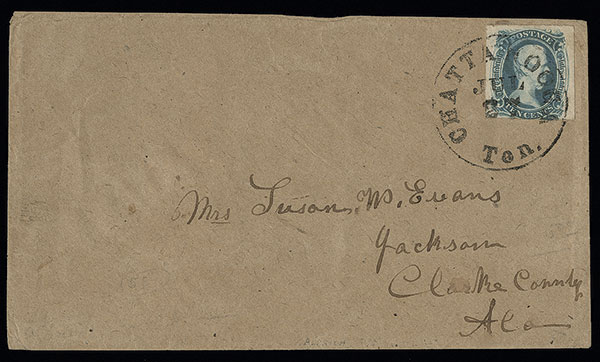 POSTAGE
TEN CENTS
CHATTANOOGA
JUL
Ten.
Mrs Susan M. Evans
Jackson
Clarke County
Ala